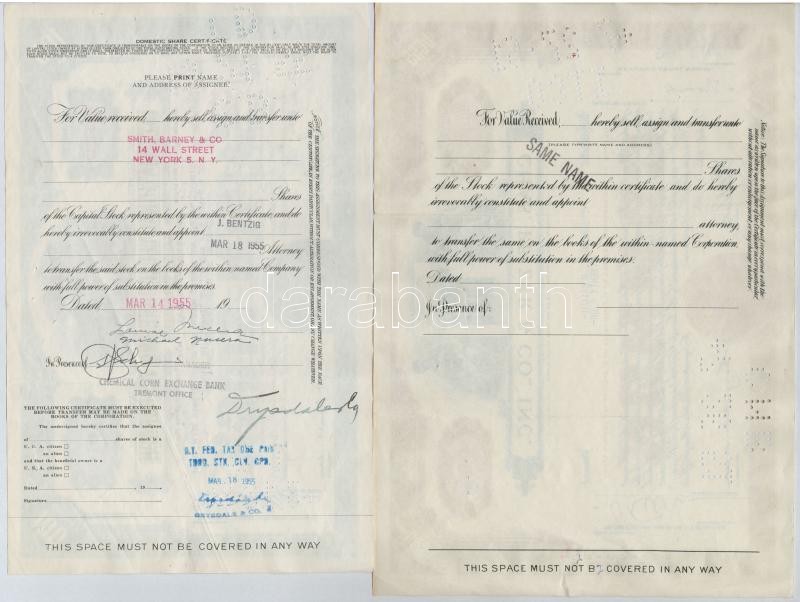 DOMESTIC SHARE CERTIFICATE
PLEASE PRINT NAME
AND ADDRESS OF ASSIGNEE
For Value received, hereby sell, assign and transfer unto
SMITH, BARNEY & CO
14 WALL STREET
NEW YORK 5, N. Y.
Shares
of the Capital Stock represented by the within Certificate, and do
hereby irrevocably constitute and appoint
J. BENTZIG
MAR 18 1955 Attorney
to transfer the said stock on the books of the within named Company
with full power of substitution in the premises.
Dated MAR 14 1955 19
Michael
In Presence of
CHEMICAL CORN EXCHANGE BANK
TREMONT OFFICE
Drysdale & Co
THE FOLLOWING CERTIFICATE MUST BE EXECUTED
BEFORE TRANSFER MAY BE MADE ON THE
BOOKS OF THE CORPORATION.
The undersigned hereby certify that the assignee
of shares of stock is a
U. S. A. citizen
an alien
and that the beneficial owner is a
U. S. A. citizen
an alien
Dated , 19
Signature
N.Y. FED. TAX
STK. CLR. CPR.
MAR 18 1955
DRYSDALE & CO.
THIS SPACE MUST NOT BE COVERED IN ANY WAY
For Value Received, hereby sell, assign and transfer unto
(PLEASE TYPEWRITE NAME AND ADDRESS)
SAME NAME
Shares
of the Stock represented by the within certificate and do hereby
irrevocably constitute and appoint
attorney,
to transfer the same on the books of the within-named Corporation
with full power of substitution in the premises.
Dated
In Presence of:
Notice: The Signature to this Assignment must correspond with the
name as written upon the face of the Certificate in every particular,
without alteration or enlargement, or any change whatever
THIS SPACE MUST NOT BE COVERED IN ANY WAY
darabanth